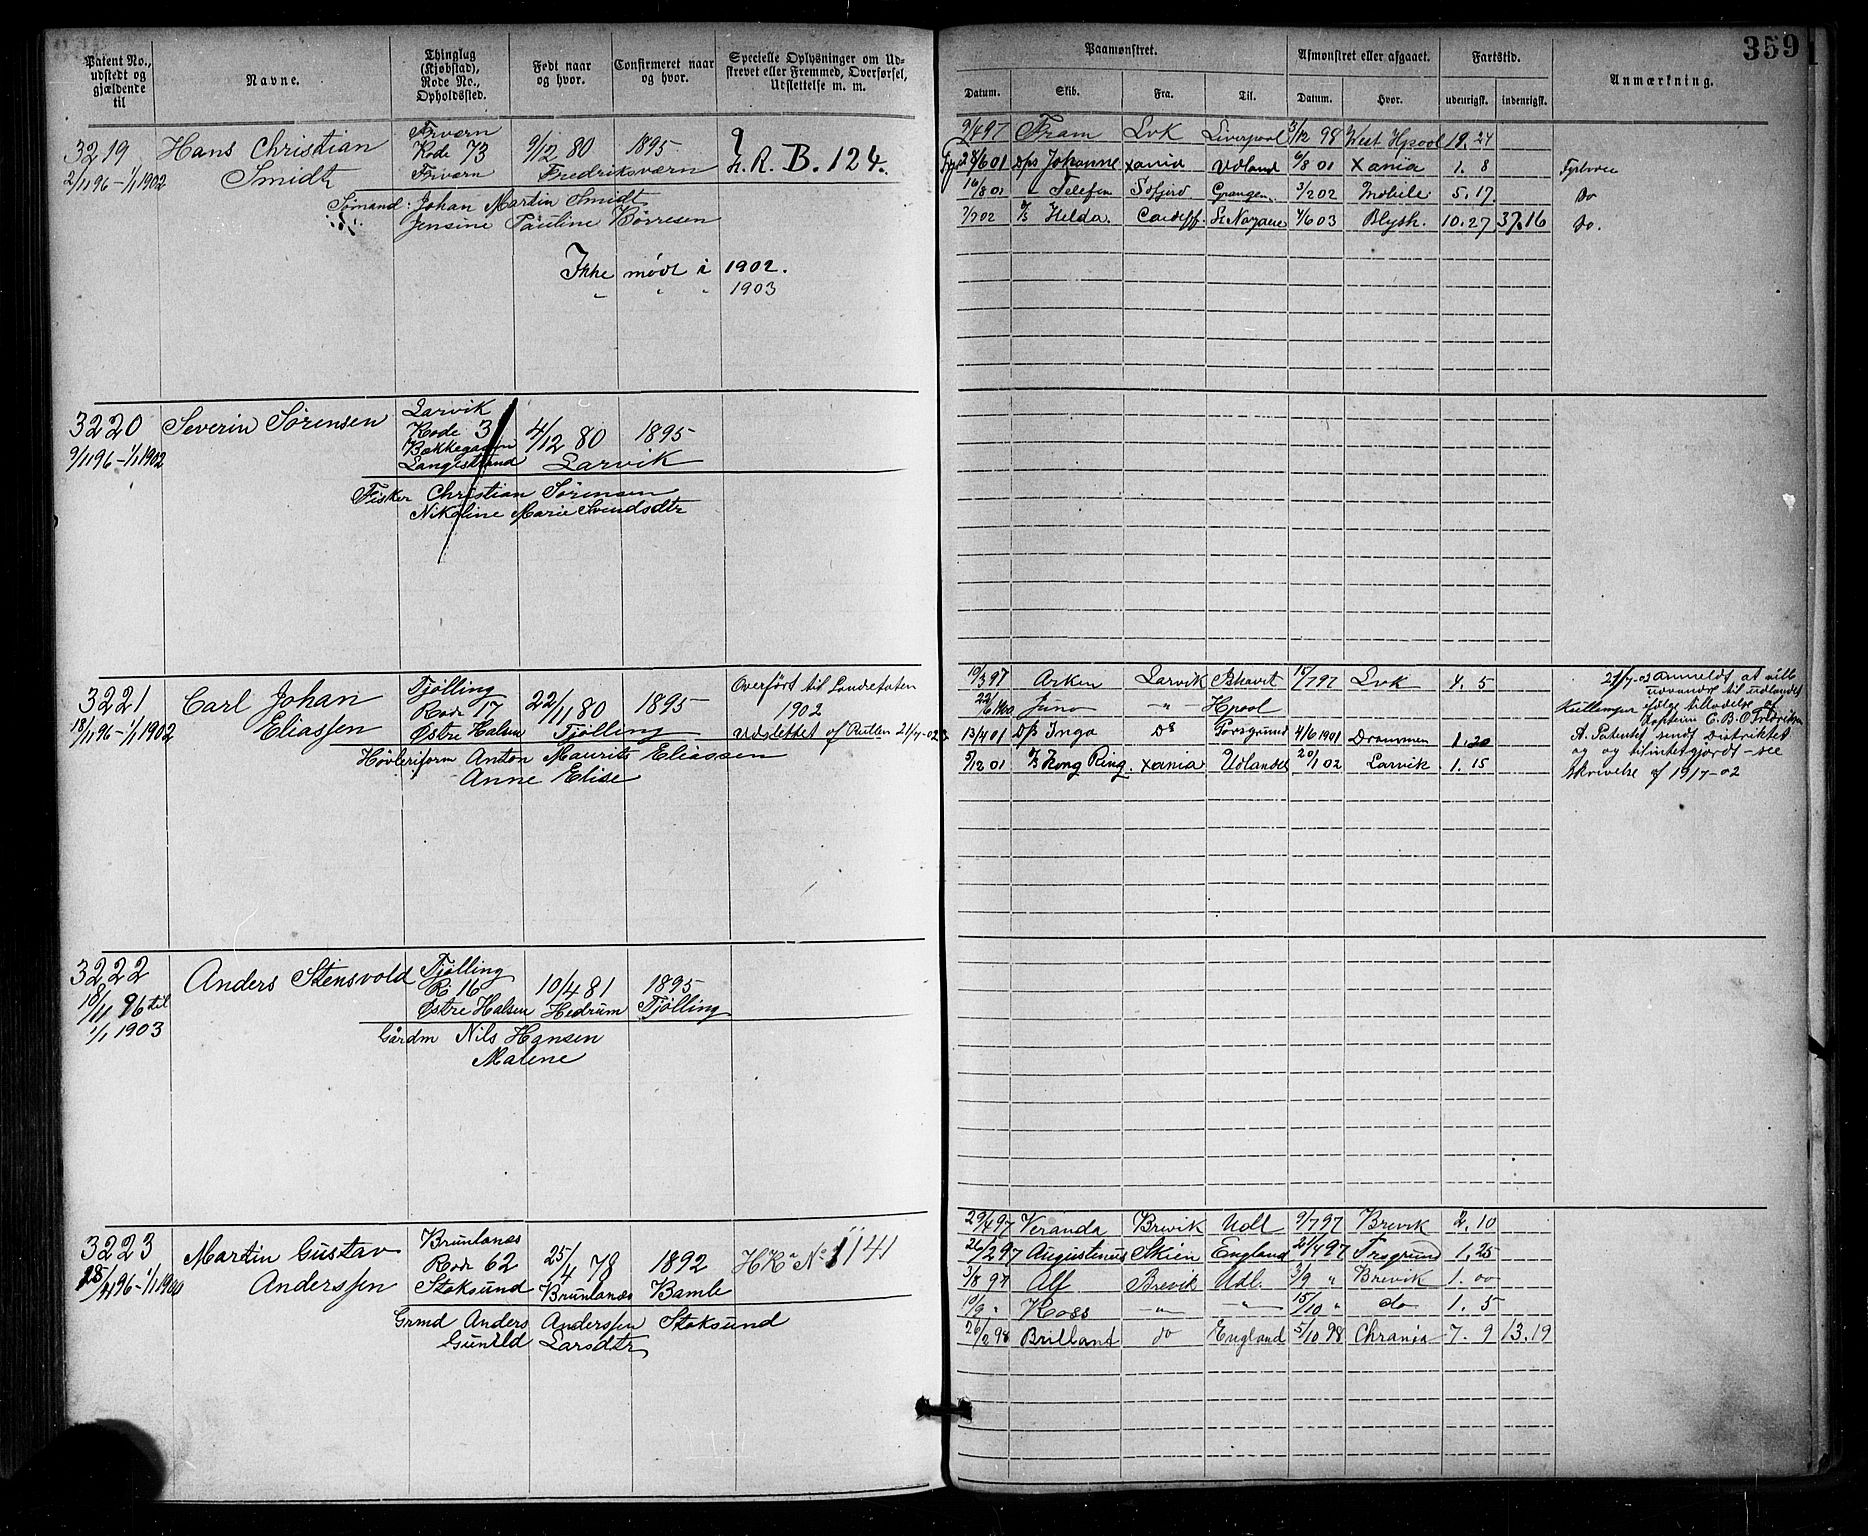 359
Patent No., udstedt og gjældende til
Navne.
Thinglag (Kjøbstad), Rode No., Opholdssted.
Født naar og hvor.
Confirmeret naar og hvor.
Specielle Oplysninger om Udstrevet eller Fremmed, Overførsel, Udslettelse m. m.
Paamønstret.
Afmønstret eller afgaaet.
Fartstid.
Anmærkning.
Datum. Skib. Fra. Til. Datum. Hvor. udenrigsk. indenrigsk.
3219 Hans Christian Smidt
2/11 96 – 1/1 1902
Frværn
Rode 73
Frværn
9/12 80 1895
Fredriksværn
h. R. B. 124.
Sømand: Johan Martin Smidt
Jensine Pauline Børresen
Ikke mødt i 1902.
" " " 1903
9/4 97 Fram Lvk Liverpool 3/12 98 West Hpool 19. 24
28/6 01 D/S Johanne Xania Udland 6/8 01 Xania 1. 8 Fyrbøder
16/8 01 " Telefon Grangem. 3/2 02 Mobile 5. 17 Do
7/7 02 Helda Cardiff St Nazaire 4/6 03 Blyth. 10. 27 37. 16 Do.
3220 Severin Sørensen
9/11 96 – 1/1 1902
Larvik
Rode 3
Bakkegaden
Langestrand
4/12 80 1895
Larvik
Fisker Christian Sørensen
Nikoline Marie Svendsdtr
3221 Carl Johan Eliassen
18/11 96 – 1/1 1902
Tjølling
Rode 17
Østre Halsen
22/11 80 1895
Tjølling
Overført til Landrotaten
1902
Udslettet af Rullen 21/7-02
Høvleriform Anton Maurits Eliassen
Anne Elise
10/3 97 Asken Larvik 15/7 97 Lvk 4. 5
22/6 1900 Juno " Hpool
13/4 01 D/S Inga Do Porsgrund 4/6 1901 Drammen 1. 20
9/12 01 Kong Ring. Xania Udlandet 20/1 02 Larvik 1. 15
21/7-02 anmeldt at ville
udvandre til udlandet
ifølge tilladelse af
Kaptein C. B. O. Fredriksen
A. Patentet sendt Distriktet
og tilintetgjordt – see
skrivelse af 19/7-02
3222 Anders Stensvold
18/11 96 til
1/1 1903
Tjølling
R. 16
Østre Halsen
10/4 81
Hedrum
1895
Tjølling
Gårdm Nils Hansen
Malene
3223 Martin Gustav Anderssen
18/11 96 – 1/1 1900
Brunlanæs
Rode 62
Stoksund
25/4 78
Brunlanæs
1892
Bamble
H K No 1141
Grmd Anders Anderssen Stoksund
Gunild Larsdtr
29/4 97 Veranda Brevik Udl 9/7 97 Brevik 2. 10
26/2 97 Augustinus Skien England 21/4 97 Prsgrund 1. 25
3/8 97 Alf Brevik Udl. 3/9 " Brevik 1. 00
10/9 " Ross " " 15/10 " do 1. 5
26/2 98 Brilland do England 5/10 98 Chrania 7. 9 13. 19